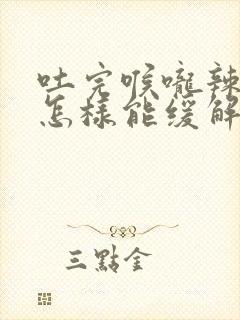 吐完喉嚨辣
怎樣能緩解
三點金